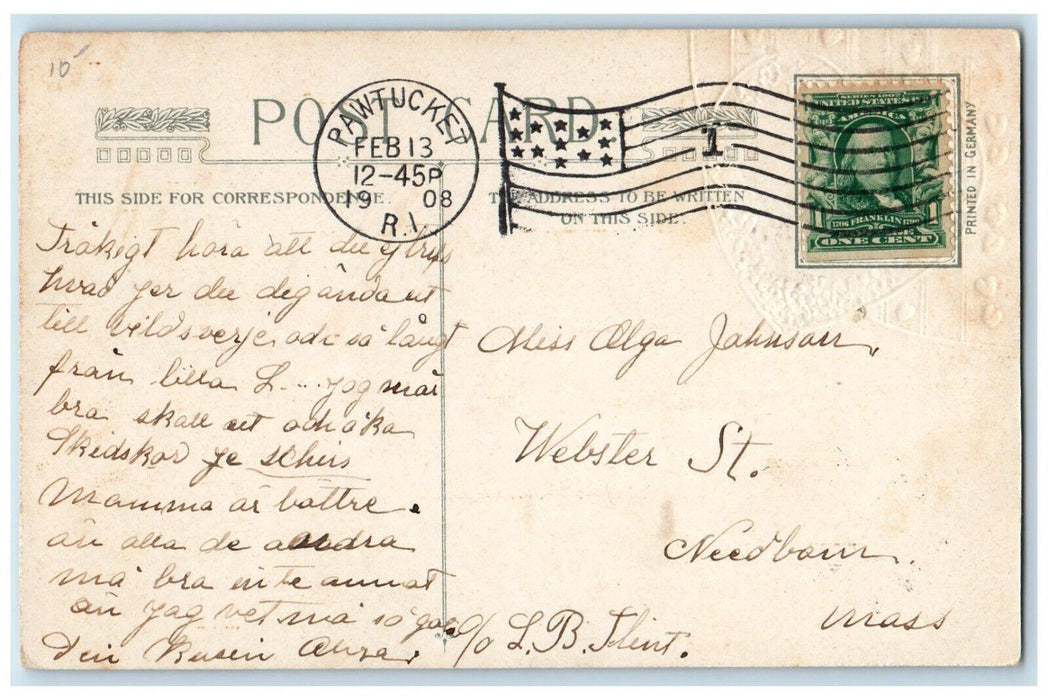 10
POST CARD
PAWTUCKET
FEB 13
12-45P
19 08
R.I.
1
SERIES 1902
UNITED STATES OF
AMERICA
1706 FRANKLIN 1790
ONE CENT
PRINTED IN GERMANY
THIS SIDE FOR CORRESPONDENCE.
THE ADDRESS TO BE WRITTEN
ON THIS SIDE.
Tråkigt hora att du ej
hvad ger du dig ända ut
till och så långt
från lilla L... jag mår
bra skall ut och åka
Skidskor
Mamma är battre
än alla de andra
må bra inte annat
än jag vet må så
Din Kusin
Miss Olga Johnson,
Webster St.
Needham.
Mass
c/o L.B. Flint.